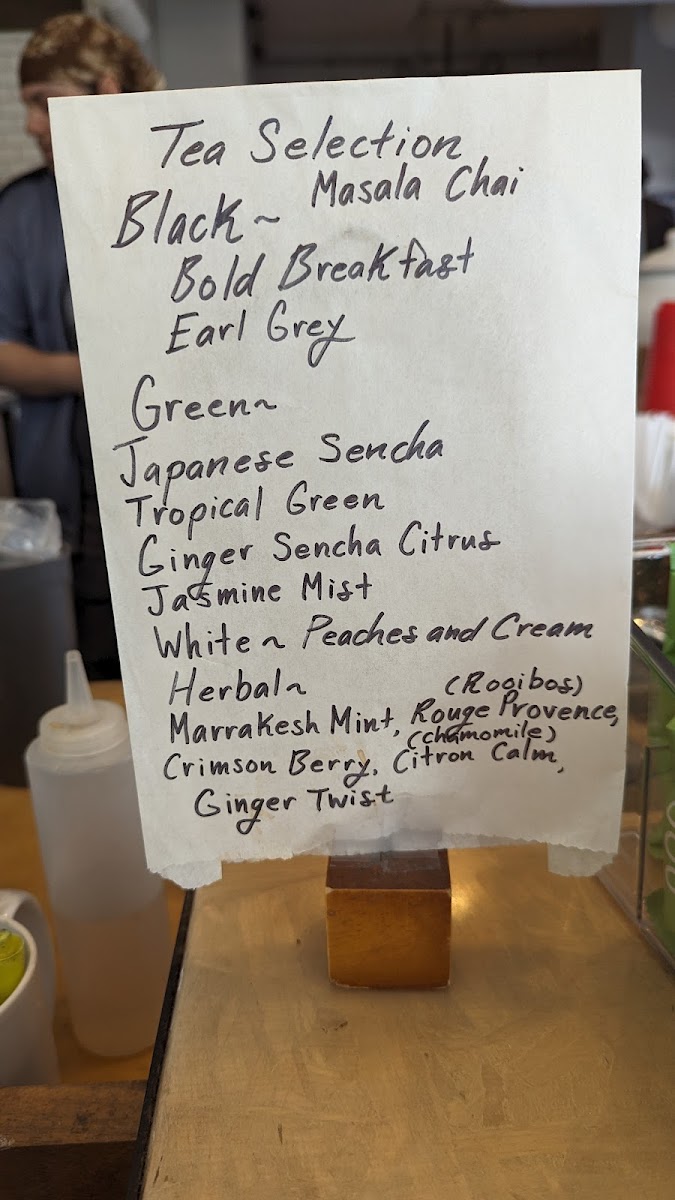 Tea Selection
Masala Chai
Black~
Bold Breakfast
Earl Grey
Green~
Japanese Sencha
Tropical Green
Ginger Sencha Citrus
Jasmine Mist
White~ Peaches and Cream
Herbal~
(Rooibos)
Marrakesh Mint, Rouge Provence,
(chamomile)
Crimson Berry, Citron Calm,
Ginger Twist